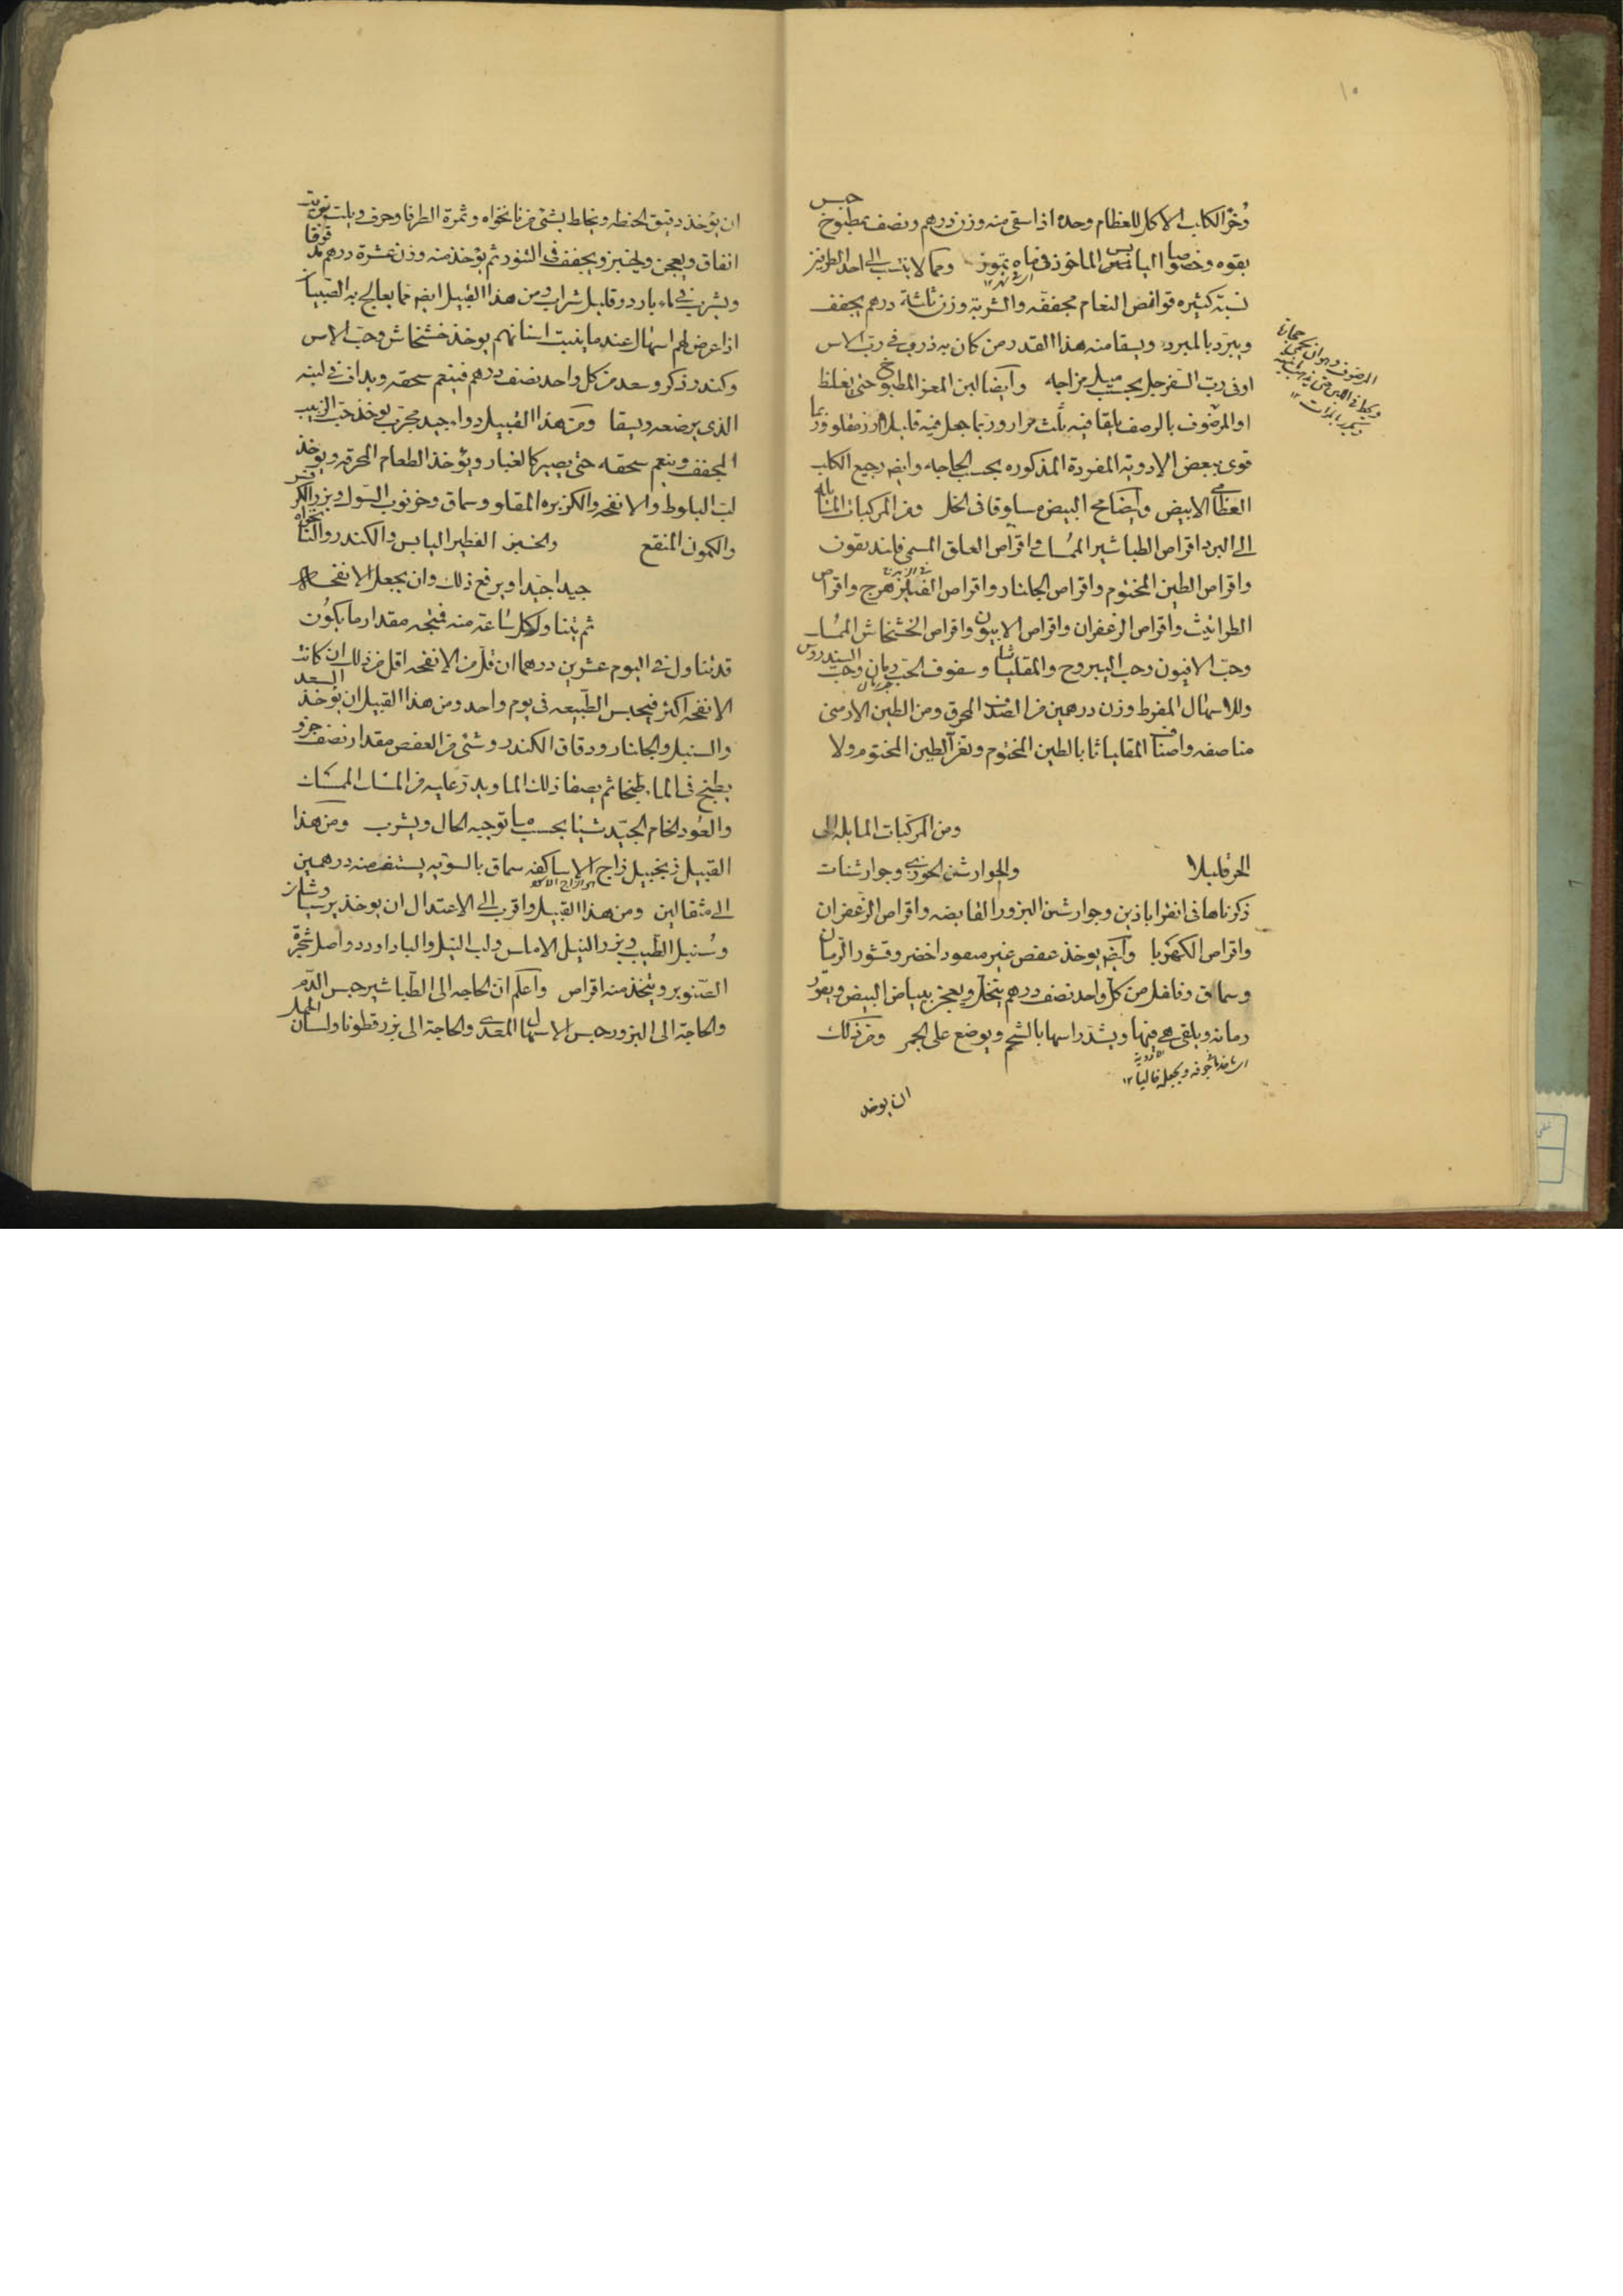 ١٠
وخرؤ الكلب الاكل للعظام وحده اذا سقى منه وزن درهم ونصف بمطبوخ حبس
بقوه وخصوصا اليابس الماخوذ فى ماه تموز ومما لا ينتسب الى احد الطرفين
نسبة كثيره قوانص النعام مجففة والشربة وزن ثلثة درهم يجفف
ويبرد بالمبرد ويسقا منه هذا القدر من كان به ذرب فى رب الاس
او فى رب السفرجل بحسب ميل مزاجه وايضا لبن المعز المطبوخ حتى يغلظ
او المرضوف بالرصف يلقا فيه ثلث مرار وربما جعل فيه قليل ارز مقلو وربما
قوى ببعض الادوية المفردة المذكوره بحسب الحاجه وايضا رجيع الكلب
العظامى الابيض وايضا مح البيض مسلوقا فى الخل ومن المركبات المائله
الى البرد اقراص الطباشير الممسك واقراص العلق المسمى
واقراص الطين المختوم واقراص الجلنار واقراص واقراص
الطراثيث واقراص الزعفران واقراص الافيون واقراص الخشخاش الممسك
وحب الافيون وحب اليبروح والمقلياثا وسفوف الحب رمان وحب السندروس
وللاسهال المفرط وزن درهمين من الصدف المحرق ومن الطين الارمنى
مناصفه واصناف المقلياثا بالطين المختوم وبغير الطين المختوم ولا
ومن المركبات المايله الى
الحر قليلا والجوارشن الخوزى وجوارشنات
ذكرناها فى انقراباذين وجوارشن البزور القابضه واقراص الزعفران
واقراص الكهربا وايضا يوخذ عفص غير مثقوب اخضر وقشور الرمان
وسماق وفلفل من كل واحد نصف درهم ينخل ويعجن ببياض البيض ويقور
رمانه ويلقى فيها ويشد راسها بالشحم ويوضع على الجمر ومن ذلك
ان يوخذ
ان يؤخذ دقيق الحنطه ويخلط بشئ من نانخواه وثمرة الطرفا وحرف ويلت بزيت
انفاق ويعجن ويخبز ويجفف فى التنور ثم يؤخذ منه وزن عشرة درهم
ويشرب فى ماء بارد وقليل شراب ومن هذا القبيل ايضا مما يعالج به الصبيان
اذا عرض لهم اسهال عند ما ينبت اسنانهم يوخذ خشخاش وحب الاس
وكندر ذكر وسعد من كل واحد نصف درهم فينعم سحقه ويداف فى لبنه
الذى يرضعه ويسقا ومن هذا القبيل دواء جيد مجرب يوخذ حب الزبيب
المجفف وينعم سحقه حتى يصير كالغبار ويؤخذ الطعام المحرقه ويوخذ
لب البلوط والانفحه والكزبره المقلو وسماق وخرنوب الشوك وبزر الكرفس
والكمون المنقع والخبز الفطير اليابس والكندر والنانخواه
جيدا جيدا ويرفع ذلك وان يجعل الانفحه
ثم يتناول كل ساعة منه فمتجه مقدار ما يكون
قد تناول فى اليوم عشرين درهما ان قلل من الانفحه اقل من ذلك ان كانت
الانفحه اكثر فيحبس الطبيعه فى يوم واحد ومن هذا القبيل ان يؤخذ السعد
والسنبل والجلنار ودقاق الكندر وشئ من العفص مقدار نصف جزو
يطبخ فى الماء طبخا ثم يصفا ذلك الما ويذر عليه من المسك
والعود الخام الجيد شيئا بحسب ما توجبه الحال ويشرب ومن هذا
القبيل زنجبيل زاج الاساكفه سماق بالسويه يستف منه درهمين
الى مثقالين ومن هذا القبيل واقرب الى الاعتدال ان يوخذ برسياوشان
وسنبل الطيب وبزر النيل الاملس ولب النيل والباداورد واصل شجرة
الصنوبر ويتخذ منه اقراص واعلم ان الحاجه الى الطباشير حبس الدم
والحاجة الى البزور حبس الاسهال المعدى والحاجة الى بزر قطونا ولسان الحمل